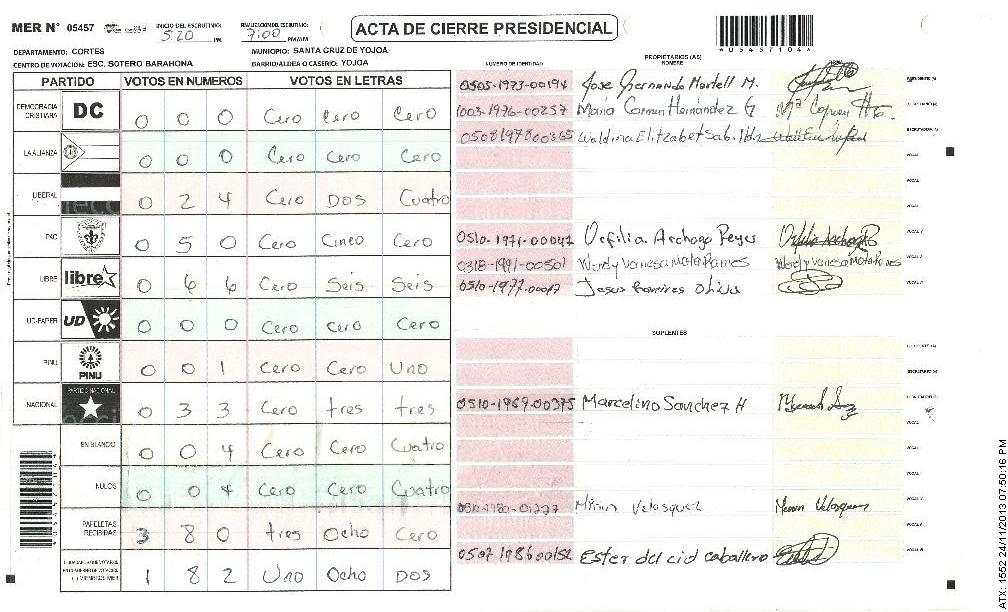 MER N° 05457
INICIO DEL ESCRUTINIO: 5:20 PM
FINALIZACION DEL ESCRUTINIO: 7:00 PM/AM
ACTA DE CIERRE PRESIDENCIAL
05457104
DEPARTAMENTO: CORTES
MUNICIPIO: SANTA CRUZ DE YOJOA
CENTRO DE VOTACIÓN: ESC. SOTERO BARAHONA
BARRIO/ALDEA O CASERIO: YOJOA
PARTIDO VOTOS EN NUMEROS VOTOS EN LETRAS
DEMOCRACIA CRISTIANA DC 0 0 0 Cero Cero Cero
LA ALIANZA 0 0 0 Cero Cero Cero
LIBERAL 0 2 4 Cero Dos Cuatro
PAC 0 5 0 Cero Cinco Cero
LIBRE libre 0 6 6 Cero Seis Seis
UD-FAPER UD 0 0 0 Cero Cero Cero
PINU PINU 0 0 1 Cero Cero Uno
NACIONAL PARTIDO NACIONAL 0 3 3 Cero tres tres
EN BLANCO 0 0 4 Cero Cero Cuatro
NULOS 0 0 4 Cero Cero Cuatro
PAPELETAS RECIBIDAS 3 8 0 tres Ocho Cero
1 8 2 Uno Ocho Dos
NUMERO DE IDENTIDAD
PROPIETARIOS (AS)
NOMBRE
0505-1973-00194 Jose Hernando Martell M. PRESIDENTE (A)
1003-1976-00257 Maria Carmen Hernández G Mª Carmen SECRETARIO (A)
0508197800365
VOCAL I
0510-1971-00042 Orfilia Archaga Reyes
0318-1991-00501 Wendy Vanesa Mata Ramos Wendy Vanesa Mata Ramos
Jesus Ramires
SUPLENTES
0510-1969-00375 Marcelino Sanchez H
Miriam Velasquez Miriam Velasquez
0507 1986 00152 Ester del cid caballero
ATX: 1552 24/11/2013 07:50:16 PM